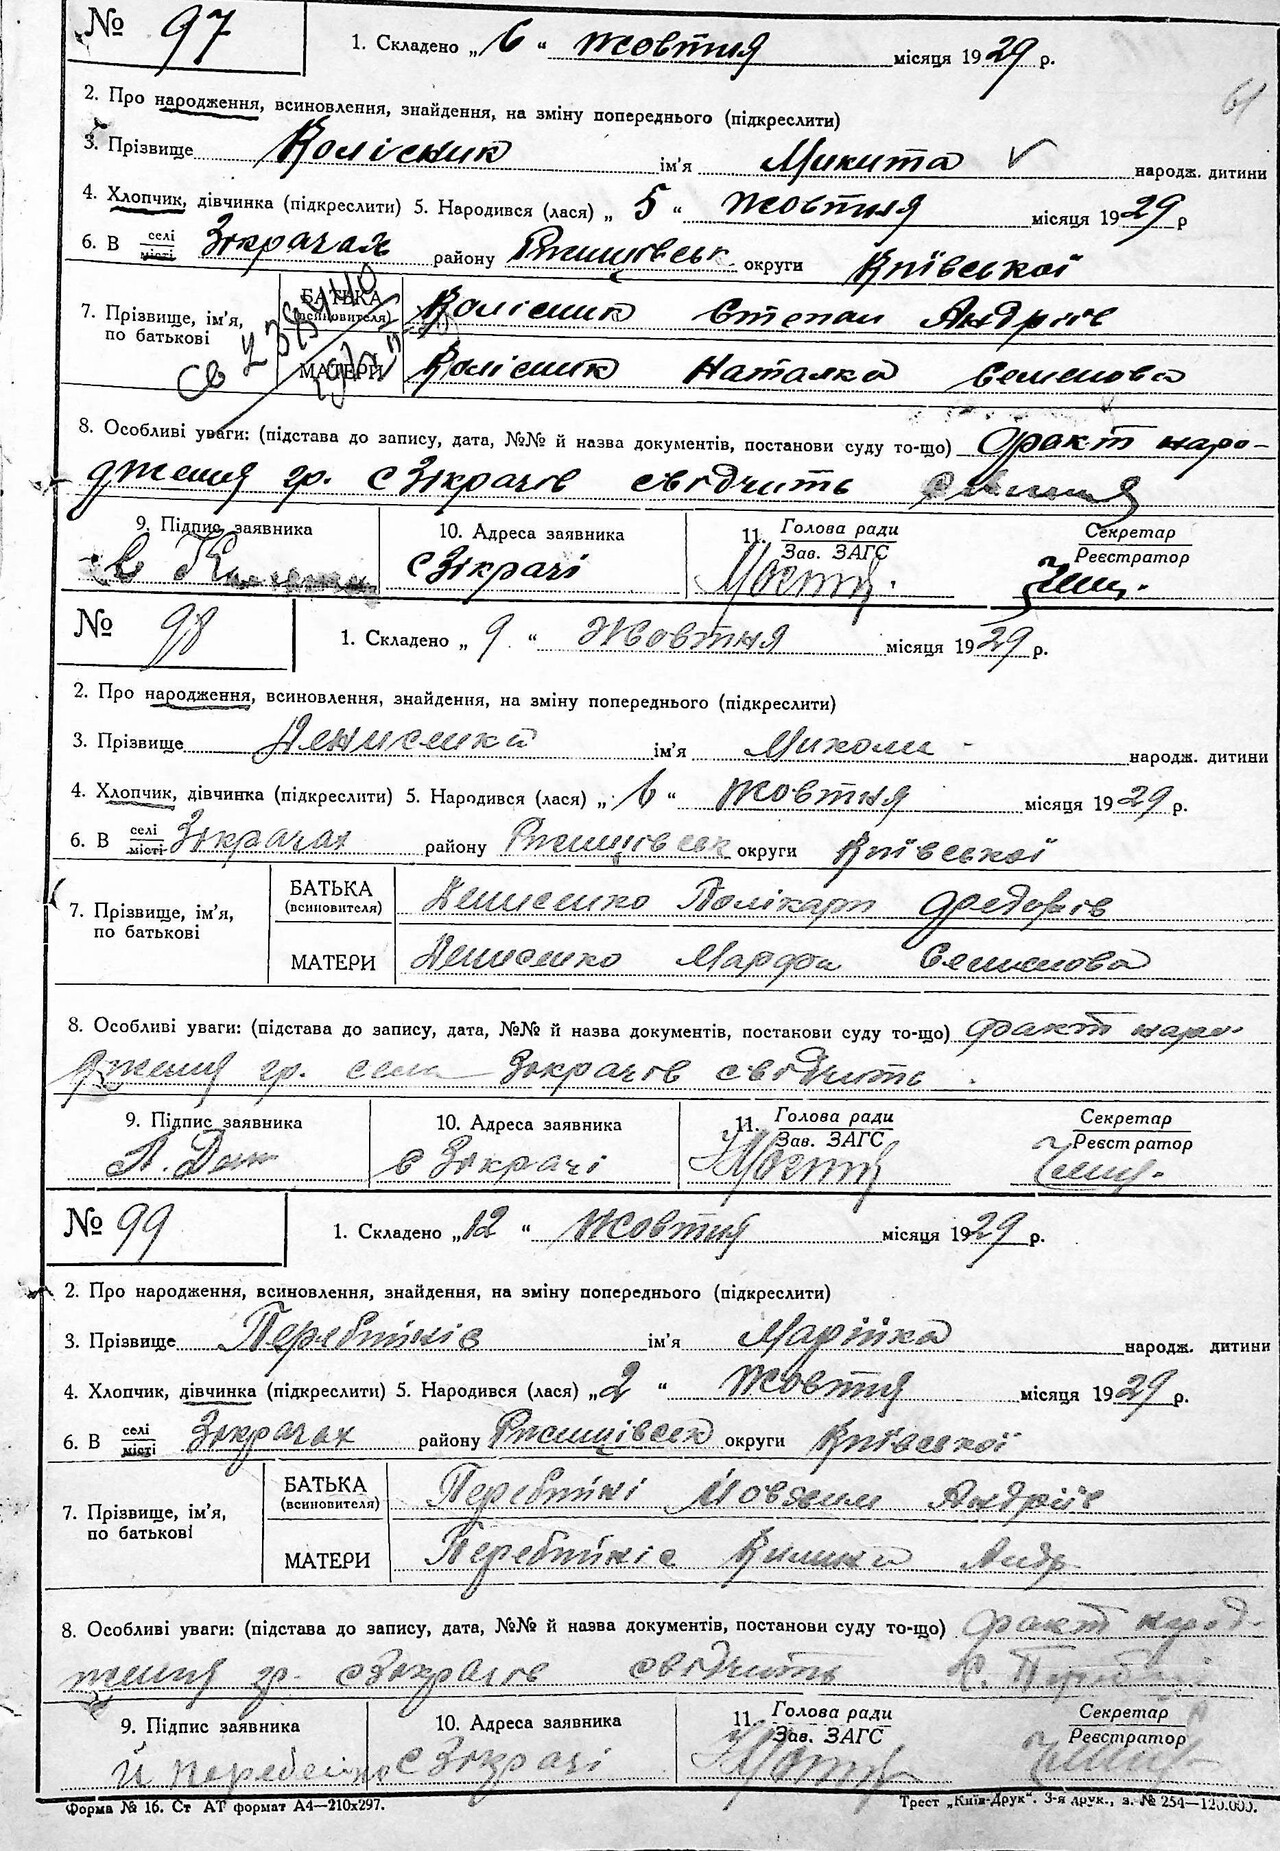 № 97
1. Складено „ 6 “ жовтня місяця 1929 р.
61
2. Про народження, всиновлення, знайдення, на зміну попереднього (підкреслити)
3. Прізвище Колісник ім'я Микита народж. дитини
4. Хлопчик, дівчинка (підкреслити) 5. Народився (лася) „ 5 “ жовтня місяця 1929 р
6. В селі місті Зікрачах району Ржищівськ округи Київської
7. Прізвище, ім'я, по батькові
БАТЬКА (всиновителя) Колісник Степан Андріїв
МАТЕРИ Колісник Наталка Семенова
8. Особливі уваги: (підстава до запису, дата, №№ й назва документів, постанови суду то-що) факт наро-
дження гр. с Зікрачів свідчить
9. Підпис заявника 10. Адреса заявника 11. Голова ради Зав. ЗАГС Секретар Реєстратор
с Зікрачі
№ 98
1. Складено „ 9 “ Жовтня місяця 1929 р.
2. Про народження, всиновлення, знайдення, на зміну попереднього (підкреслити)
3. Прізвище Денисенка ім'я Миколи народж. дитини
4. Хлопчик, дівчинка (підкреслити) 5. Народився (лася) „ 6 “ жовтня місяця 1929 р.
6. В селі місті Зікрачах району Ржищівськ округи Київської
7. Прізвище, ім'я, по батькові
БАТЬКА (всиновителя) Денисенко Полікарп Федорів
МАТЕРИ Денисенко Марфа Семенова
8. Особливі уваги: (підстава до запису, дата, №№ й назва документів, постанови суду то-що) факт наро-
дження гр. села Зікрачів свідчить
9. Підпис заявника 10. Адреса заявника 11. Голова ради Зав. ЗАГС Секретар Реєстратор
П. Ден с Зікрачі
№ 99
1. Складено „ 12 “ жовтня місяця 1929 р.
2. Про народження, всиновлення, знайдення, на зміну попереднього (підкреслити)
3. Прізвище ім'я Марійка народж. дитини
4. Хлопчик, дівчинка (підкреслити) 5. Народився (лася) „ 2 “ жовтня місяця 1929 р.
6. В селі місті Зікрачах району Ржищівськ округи Київської
7. Прізвище, ім'я, по батькові
БАТЬКА (всиновителя) Андріїв
МАТЕРИ Килина Андр
8. Особливі уваги: (підстава до запису, дата, №№ й назва документів, постанови суду то-що) факт народ-
ження гр. с Зікрачів свідчить
9. Підпис заявника 10. Адреса заявника 11. Голова ради Зав. ЗАГС Секретар Реєстратор
с Зікрачі
Форма № 16. Ст АТ формат А4—210x297. Трест „Київ-Друк“. 3-я друк., з. № 254—120.000.